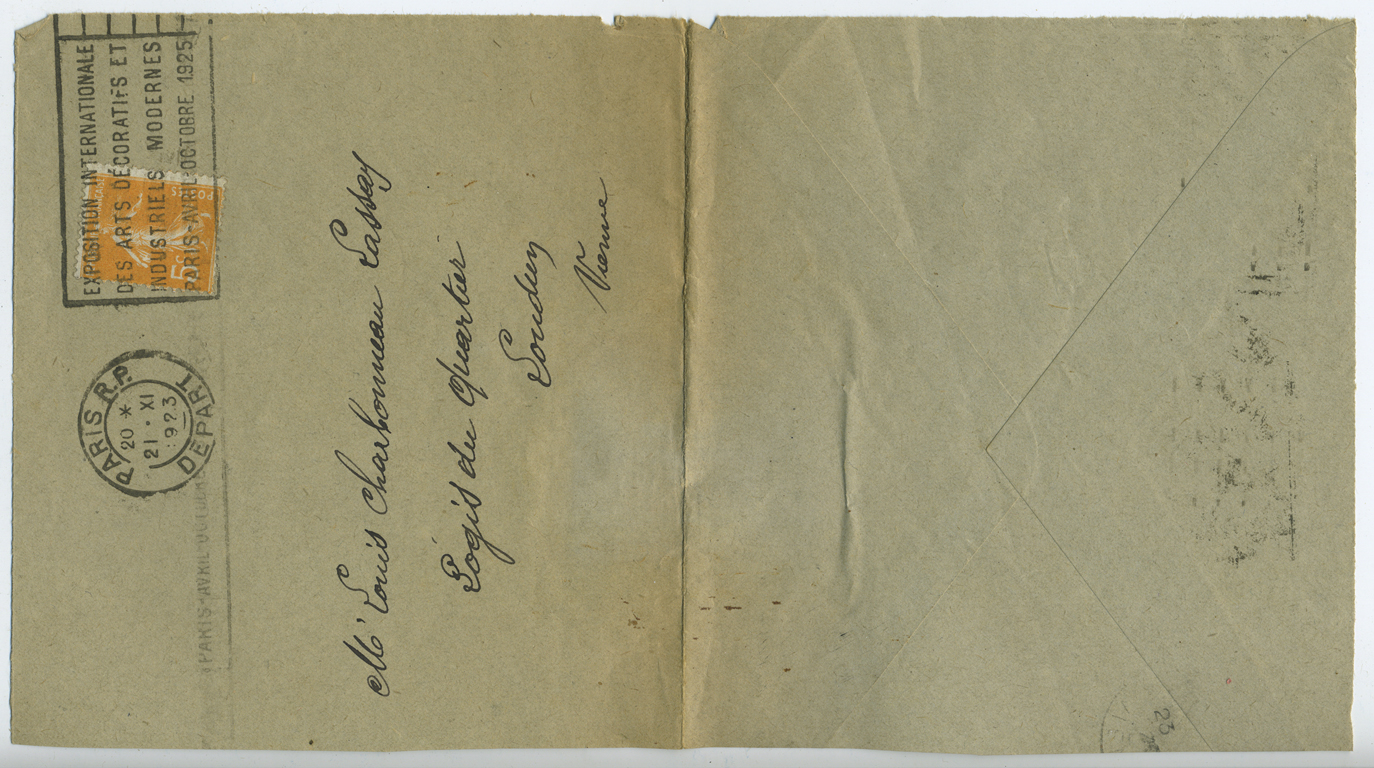 EXPOSITION INTERNATIONALE
DES ARTS DÉCORATIFS ET
INDUSTRIELS MODERNES
PARIS-AVRIL-OCTOBRE 1925
POSTES
5c
PARIS R.P.
20 *
21 · XI
1923
DÉPART
PARIS-AVRIL OCTOBRE
Mr Louis Charbonneau Lassay
Logis du Quartier
Loudun
Vienne
23